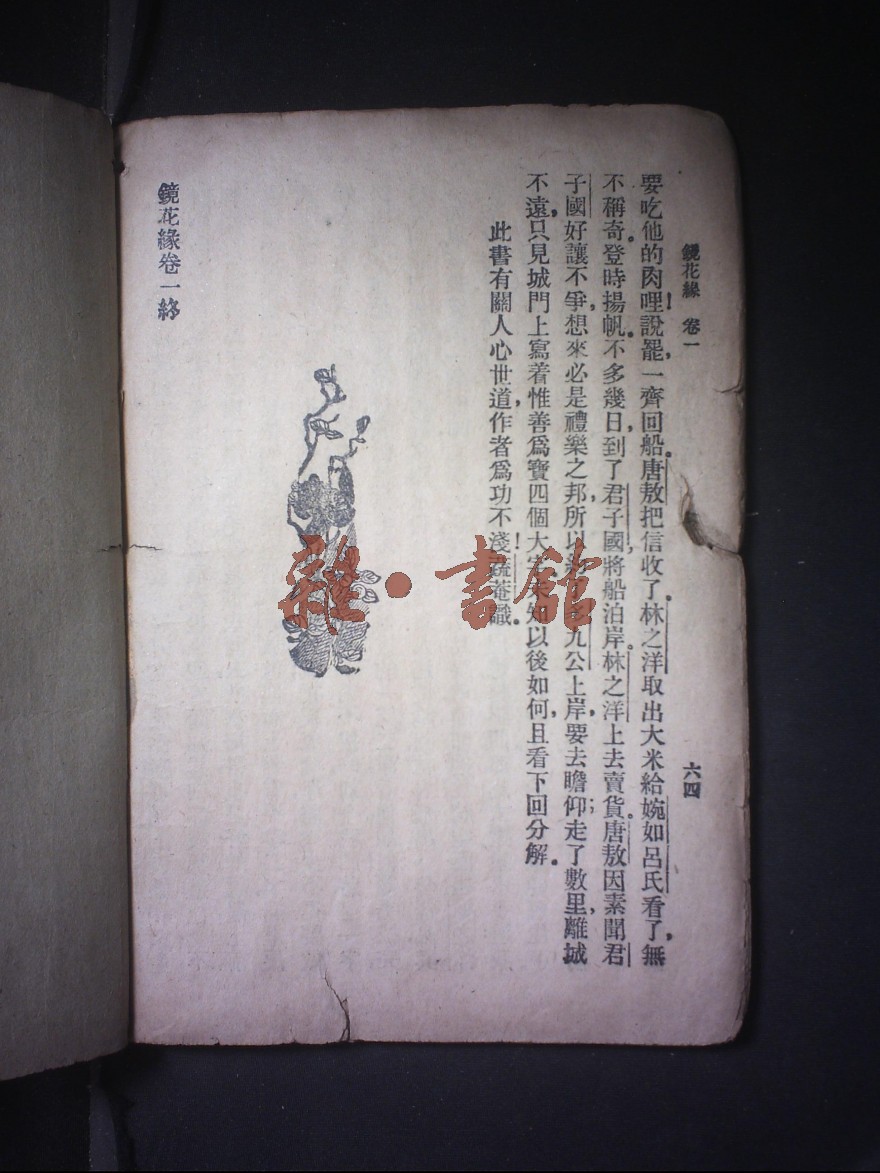 鏡花緣 卷一
六四
要吃他的肉哩！說罷，一齊回船。唐敖把信收了。林之洋取出大米給婉如呂氏看了，無
不稱奇。登時揚帆。不多幾日，到了君子國，將船泊岸。林之洋上去賣貨。唐敖因素聞君
子國好讓不爭，想來必是禮樂之邦，所以九公上岸，要去瞻仰；走了數里，離城
不遠，只見城門上寫着惟善爲寶四個大字！未知以後如何，且看下回分解。
此書有關人心世道，作者爲功不淺！疏菴識。
鏡花緣卷一終
雜·書館